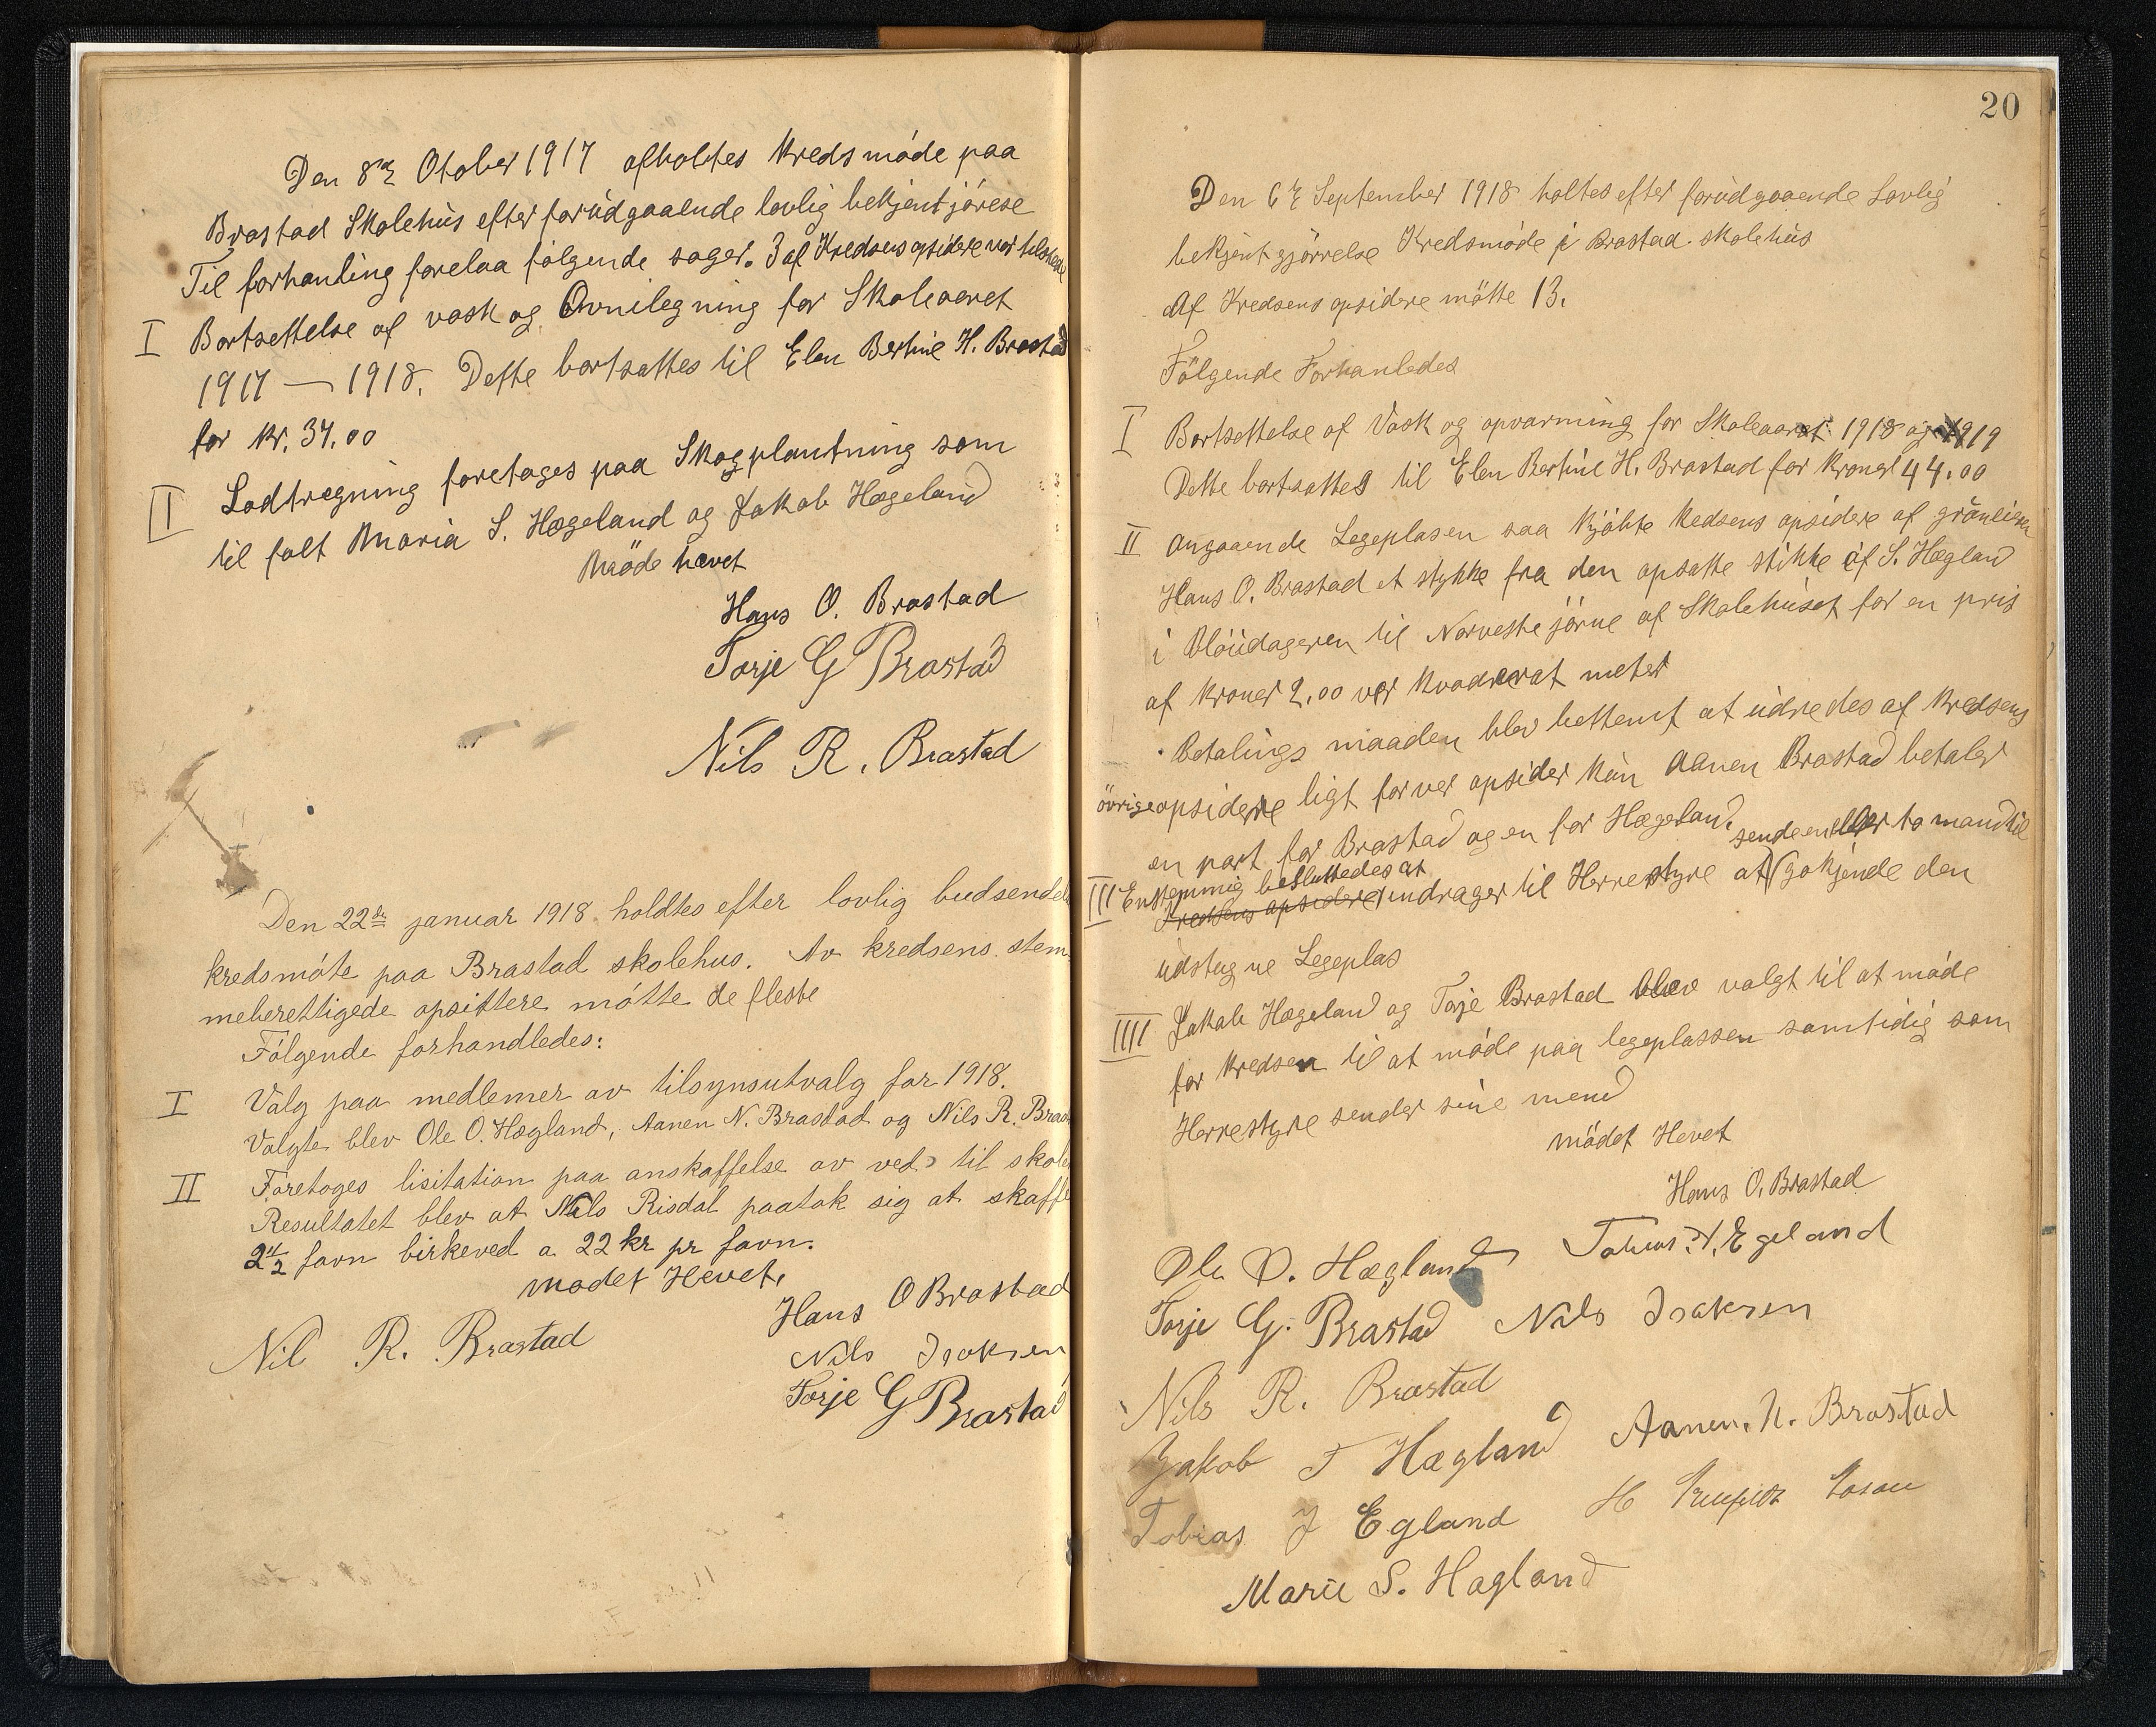 Den 8de Otober 1917 afholtes Kredsmøde paa
Brastad Skolehus efter forudgaaende lovlig bekjentjørese
Til forhanling forelaa følgende sager. 3 af Kredsens opsidere var tilstede
I Bortsettelse af vask og Ovnilegning for Skoleaaret
1917 — 1918. Dette bortsattes til Elen Bertine H. Brastad
for Kr. 37.00
II Lodtregning foretoges paa Skogplantning som
til falt Maria S. Hægeland og Jakob Hægeland
Møde hævet
Hans O. Brastad
Torje G Brastad
Nils R. Brastad
Den 22de januar 1918 holdtes efter lovlig budsendel
kredsmøte paa Brastad skolehus. Av kredsens stem
meberettigede opsittere møtte de fleste
Følgende forhandledes:
I Valg paa medlemer av tilsynsutvalg for 1918.
Valgte blev Ole O. Hægland, Aanen N. Brastad og Nils R. Bras
II Foretoges lisitation paa anskaffelse av ved til skole
Resultatet blev at Nils Risdal paatok sig at skaffe
2 1/2 favn birkeved a 22 kr pr favn.
mødet Hevet.
Hans O Brastad
Nils Isaksen
Nil R. Brastad
Torje G Brastad
20
Den 6te September 1918 holtes efter forudgaaende Lovlig
bekjentgjørrelse Kredsmøde i Brastad skolehus
Af Kredsens opsidere møtte 13.
Følgende Forhanledes
I Bortsettelse af Vask og opvarming for Skoleaaret 1918 og 1919
Dette bortsattes til Elen Bertine H. Brastad for Kroner 44.00
II Angaaende Legeplasen saa Kjøbte Kedsens opsidere af gråneieren
Hans O. Brastad et stykke fra den opsatte stikke af S. Hægland
i Pløudageren til Norveste jørne af Skolehuset for en pris
af Kroner 2.00 ver Kvadrerat meter
Betalings maaden blev bestemt at udredes af Kredsens
øvrige opsidere ligt for ver opsider Kun Aanen Brastad betaler
en part for Brastad og en for Hægeland.
sende en eller to mand til
III Enstemmig besluttedes at
Kredsens opsidere andrager til Herrestyre at gokjende den
udstugne Legeplas
IIII Jakob Hægeland og Torje Brastad blev valgt til at møde
for Kredsen til at møde paa legeplassen samtidig som
Herrestyre sender sine mend
mødet Hevet
Hans O. Brastad
Ole O. Hægland Tobias T. Egeland
Torje G. Brastad Nils Isaksen
Nils R. Brastad
Jakob T Hægland Aanen. N. Brastad
Tobias J Egland H
Marie S. Hagland